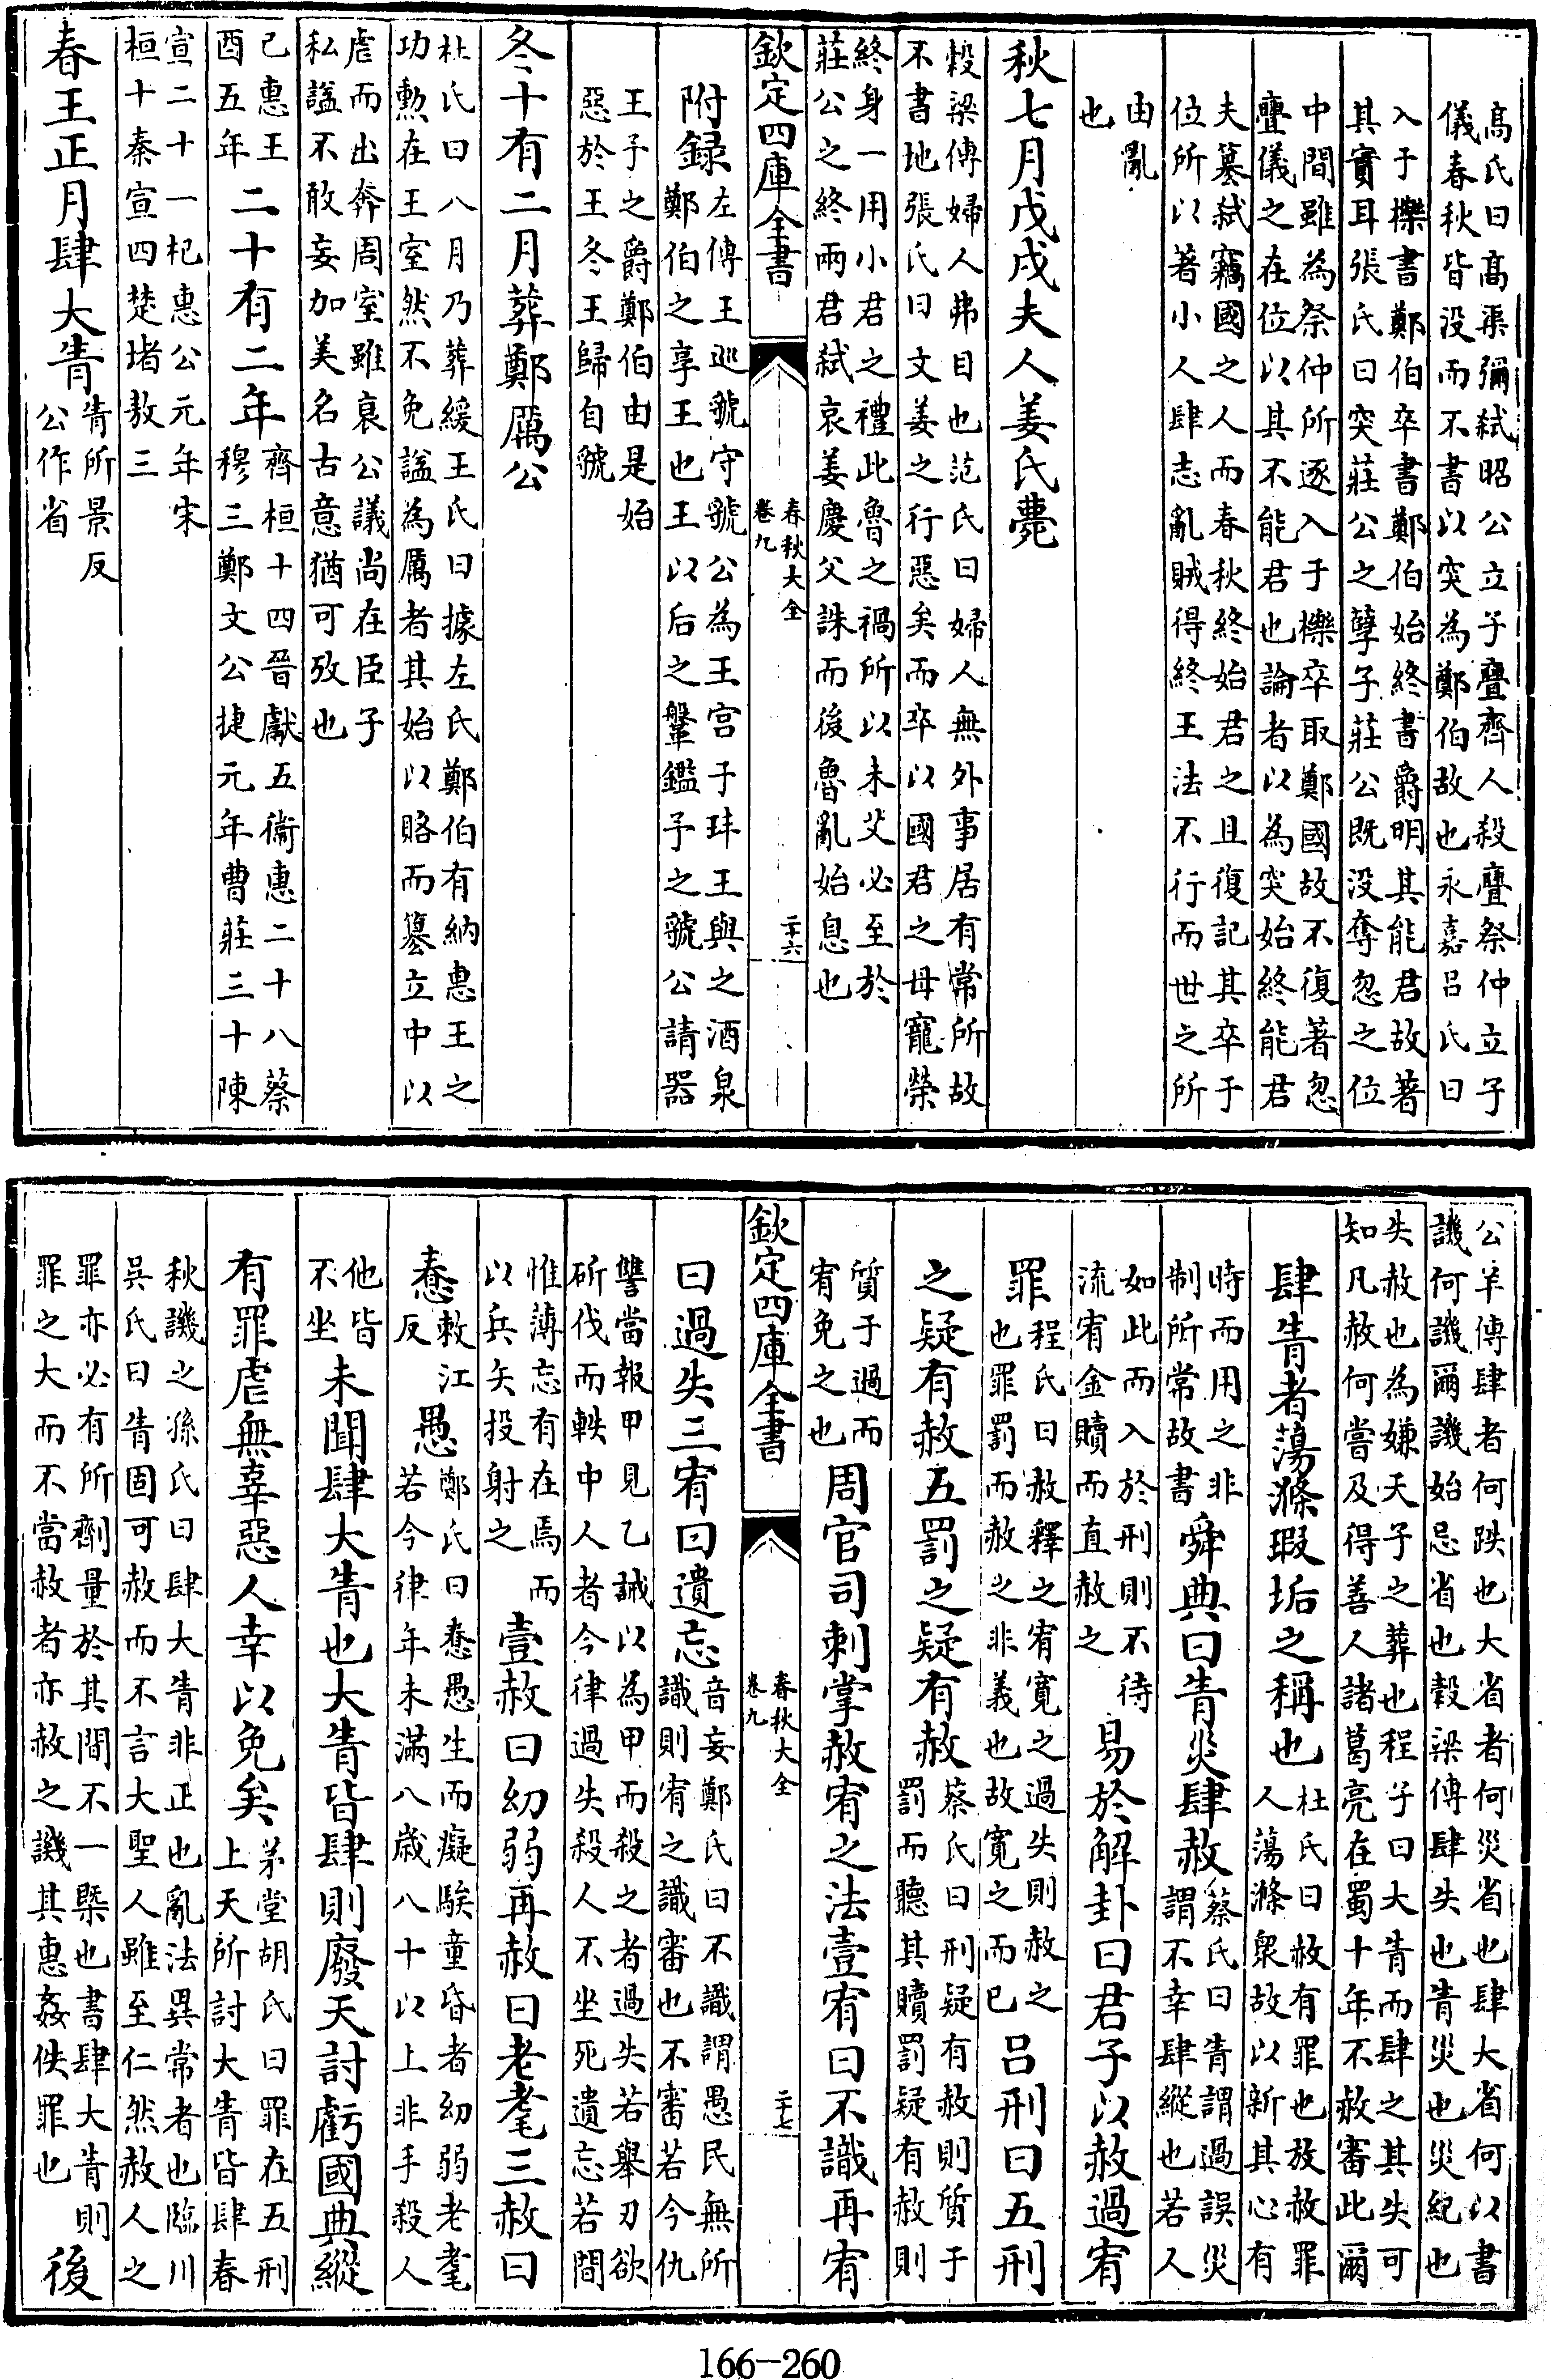 髙氏曰髙渠彌弑昭公立子亹齊人殺亹祭仲立子
儀春秋皆没而不書以突為鄭伯故也永嘉吕氏曰
入于櫟書鄭伯卒書鄭伯始終書爵明其能君故著
其實耳張氏曰突莊公之孽子莊公既没奪忽之位
中間雖為祭仲所逐入于櫟卒取鄭國故不復著忽
亹儀之在位以其不能君也論者以為突始終能君
夫簒弑竊國之人而春秋終始君之且復記其卒于
位所以著小人肆志亂賊得終王法不行而世之所
由亂
也
秋七月戊戌夫人姜氏薨
榖梁傳婦人弗目也范氏曰婦人無外事居有常所故
不書地張氏曰文姜之行惡矣而卒以國君之母寵榮
終身一用小君之禮此魯之禍所以未艾必至於
莊公之終兩君弑哀姜慶父誅而後魯亂始息也
欽定四庫全書
春秋大全
卷九
二十六
附録
左傳王廵虢守虢公為王宫于玤王與之酒泉
鄭伯之享王也王以后之鞶鑑予之虢公請器
王予之爵鄭伯由是始
惡於王冬王歸自虢
冬十有二月葬鄭厲公
杜氏曰八月乃葬緩王氏曰據左氏鄭伯有納惠王之
功勲在王室然不免諡為厲者其始以賂而簒立中以
虐而出奔周室雖衰公議尚在臣子
私諡不敢妄加美名古意猶可攷也
己惠王
酉五年
二十有二年
齊桓十四晉獻五衞惠二十八蔡
穆三鄭文公捷元年曹莊三十陳
宣二十一杞惠公元年宋
桓十秦宣四楚堵敖三
春王正月肆大眚
眚所景反
公作省
公羊傳肆者何跌也大省者何災省也肆大省何以書
譏何譏爾譏始忌省也榖梁傳肆失也眚災也災紀也
失赦也為嫌天子之葬也程子曰大眚而肆之其失可
知凡赦何嘗及得善人諸葛亮在蜀十年不赦審此爾
肆眚者蕩滌瑕垢之稱也
杜氏曰赦有罪也放赦罪
人蕩滌衆故以新其心有
時而用之非
制所常故書
舜典曰眚災肆赦
蔡氏曰眚謂過誤災
謂不幸肆縱也若人
如此而入於刑則不待
流宥金贖而直赦之
易於解卦曰君子以赦過宥
罪
程氏曰赦釋之宥寛之過失則赦之
也罪罰而赦之非義也故寛之而已
吕刑曰五刑
之疑有赦五罰之疑有赦
蔡氏曰刑疑有赦則質于
罰而聽其贖罰疑有赦則
質于過而
宥免之也
周官司刺掌赦宥之法壹宥曰不識再宥
欽定四庫全書
春秋大全
卷九
二十七
曰過失三宥曰遺忘
音妄鄭氏曰不識謂愚民無所
識則宥之識審也不審若今仇
讐當報甲見乙誠以為甲而殺之者過失若舉刃欲
斫伐而軼中人者今律過失殺人不坐死遺忘若間
惟薄忘有在焉而
以兵矢投射之
壹赦曰幼弱再赦曰老耄三赦曰
惷
敕江
反
愚
鄭氏曰惷愚生而癡騃童昏者幼弱老耄
若今律年未滿八歳八十以上非手殺人
他皆
不坐
未聞肆大眚也大眚皆肆則廢天討虧國典縱
有罪虐無辜惡人幸以免矣
茅堂胡氏曰罪在五刑
上天所討大眚皆肆春
秋譏之孫氏曰肆大眚非正也亂法異常者也臨川
吳氏曰眚固可赦而不言大聖人雖至仁然赦人之
罪亦必有所劑量於其間不一槩也書肆大眚則
罪之大而不當赦者亦赦之譏其惠姦佚罪也
後
166-260